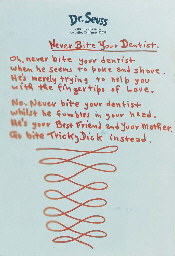 Dr. Seuss
Never Bite Your Dentist.
Oh, never bite your dentist
when he seems to poke and shove.
He's merely trying to help you
with the fingertips of Love.
No. Never bite your dentist
whilst he fumbles in your head.
He's your Best Friend and your Mother.
Go bite Tricky Dick instead.